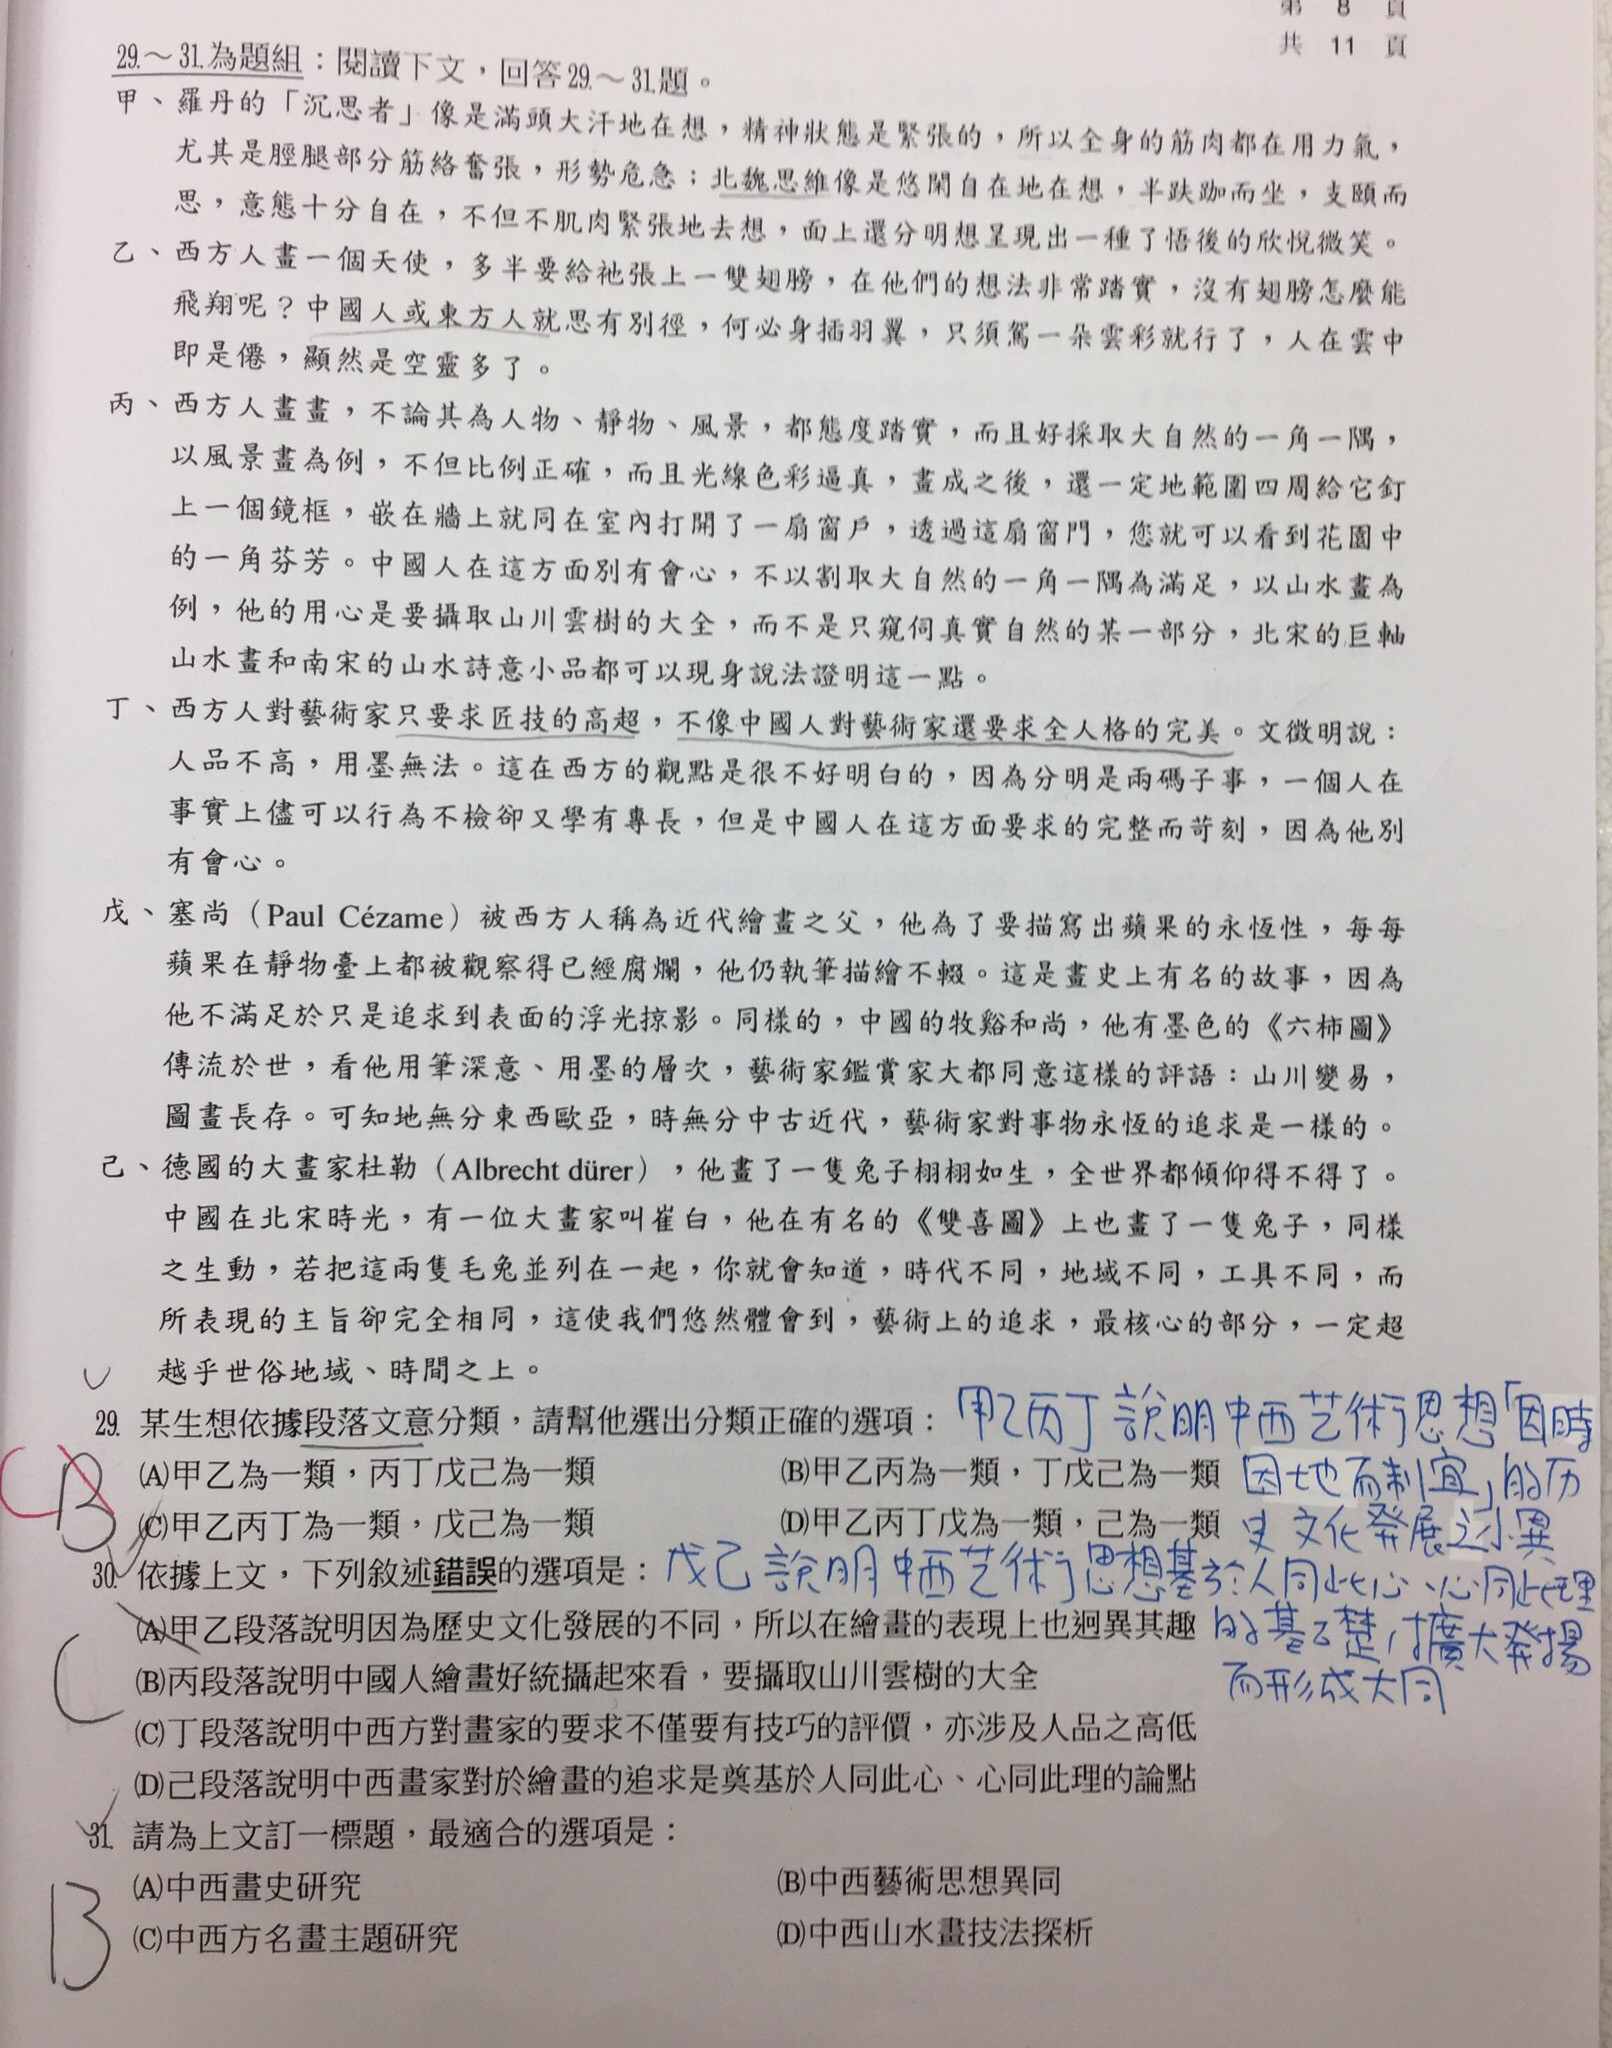 第 8 頁
共 11 頁
29.～31.為題組：閱讀下文，回答29.～31.題。
甲、羅丹的「沉思者」像是滿頭大汗地在想，精神狀態是緊張的，所以全身的筋肉都在用力氣，
尤其是脛腿部分筋絡奮張，形勢危急；北魏思維像是悠閒自在地在想，半趺跏而坐，支頤而
思，意態十分自在，不但不肌肉緊張地去想，面上還分明想呈現出一種了悟後的欣悅微笑。
乙、西方人畫一個天使，多半要給祂張上一雙翅膀，在他們的想法非常踏實，沒有翅膀怎麼能
飛翔呢？中國人或東方人就思有別徑，何必身插羽翼，只須駕一朵雲彩就行了，人在雲中
即是僊，顯然是空靈多了。
丙、西方人畫畫，不論其為人物、靜物、風景，都態度踏實，而且好採取大自然的一角一隅，
以風景畫為例，不但比例正確，而且光線色彩逼真，畫成之後，還一定地範圍四周給它釘
上一個鏡框，嵌在牆上就同在室內打開了一扇窗戶，透過這扇窗門，您就可以看到花園中
的一角芬芳。中國人在這方面別有會心，不以割取大自然的一角一隅為滿足，以山水畫為
例，他的用心是要攝取山川雲樹的大全，而不是只窺伺真實自然的某一部分，北宋的巨軸
山水畫和南宋的山水詩意小品都可以現身說法證明這一點。
丁、西方人對藝術家只要求匠技的高超，不像中國人對藝術家還要求全人格的完美。文徵明說：
人品不高，用墨無法。這在西方的觀點是很不好明白的，因為分明是兩碼子事，一個人在
事實上儘可以行為不檢卻又學有專長，但是中國人在這方面要求的完整而苛刻，因為他別
有會心。
戊、塞尚（Paul Cézame）被西方人稱為近代繪畫之父，他為了要描寫出蘋果的永恆性，每每
蘋果在靜物臺上都被觀察得已經腐爛，他仍執筆描繪不輟。這是畫史上有名的故事，因為
他不滿足於只是追求到表面的浮光掠影。同樣的，中國的牧谿和尚，他有墨色的《六柿圖》
傳流於世，看他用筆深意、用墨的層次，藝術家鑑賞家大都同意這樣的評語：山川變易，
圖畫長存。可知地無分東西歐亞，時無分中古近代，藝術家對事物永恆的追求是一樣的。
己、德國的大畫家杜勒（Albrecht dürer），他畫了一隻兔子栩栩如生，全世界都傾仰得不得了。
中國在北宋時光，有一位大畫家叫崔白，他在有名的《雙喜圖》上也畫了一隻兔子，同樣
之生動，若把這兩隻毛兔並列在一起，你就會知道，時代不同，地域不同，工具不同，而
所表現的主旨卻完全相同，這使我們悠然體會到，藝術上的追求，最核心的部分，一定超
越乎世俗地域、時間之上。
29. 某生想依據段落文意分類，請幫他選出分類正確的選項：
甲乙丙丁說明中西艺術思想「因時
因地而制宜」的历
史文化發展之小異
B
C
(A)甲乙為一類，丙丁戊己為一類
(B)甲乙丙為一類，丁戊己為一類
(C)甲乙丙丁為一類，戊己為一類
(D)甲乙丙丁戊為一類，己為一類
30. 依據上文，下列敘述錯誤的選項是：
戊己說明中西艺術思想基於人同此心、心同此理
的基礎，擴大發揚
而形成大同
C
(A)甲乙段落說明因為歷史文化發展的不同，所以在繪畫的表現上也迥異其趣
(B)丙段落說明中國人繪畫好統攝起來看，要攝取山川雲樹的大全
(C)丁段落說明中西方對畫家的要求不僅要有技巧的評價，亦涉及人品之高低
(D)己段落說明中西畫家對於繪畫的追求是奠基於人同此心、心同此理的論點
31. 請為上文訂一標題，最適合的選項是：
B
(A)中西畫史研究
(B)中西藝術思想異同
(C)中西方名畫主題研究
(D)中西山水畫技法探析